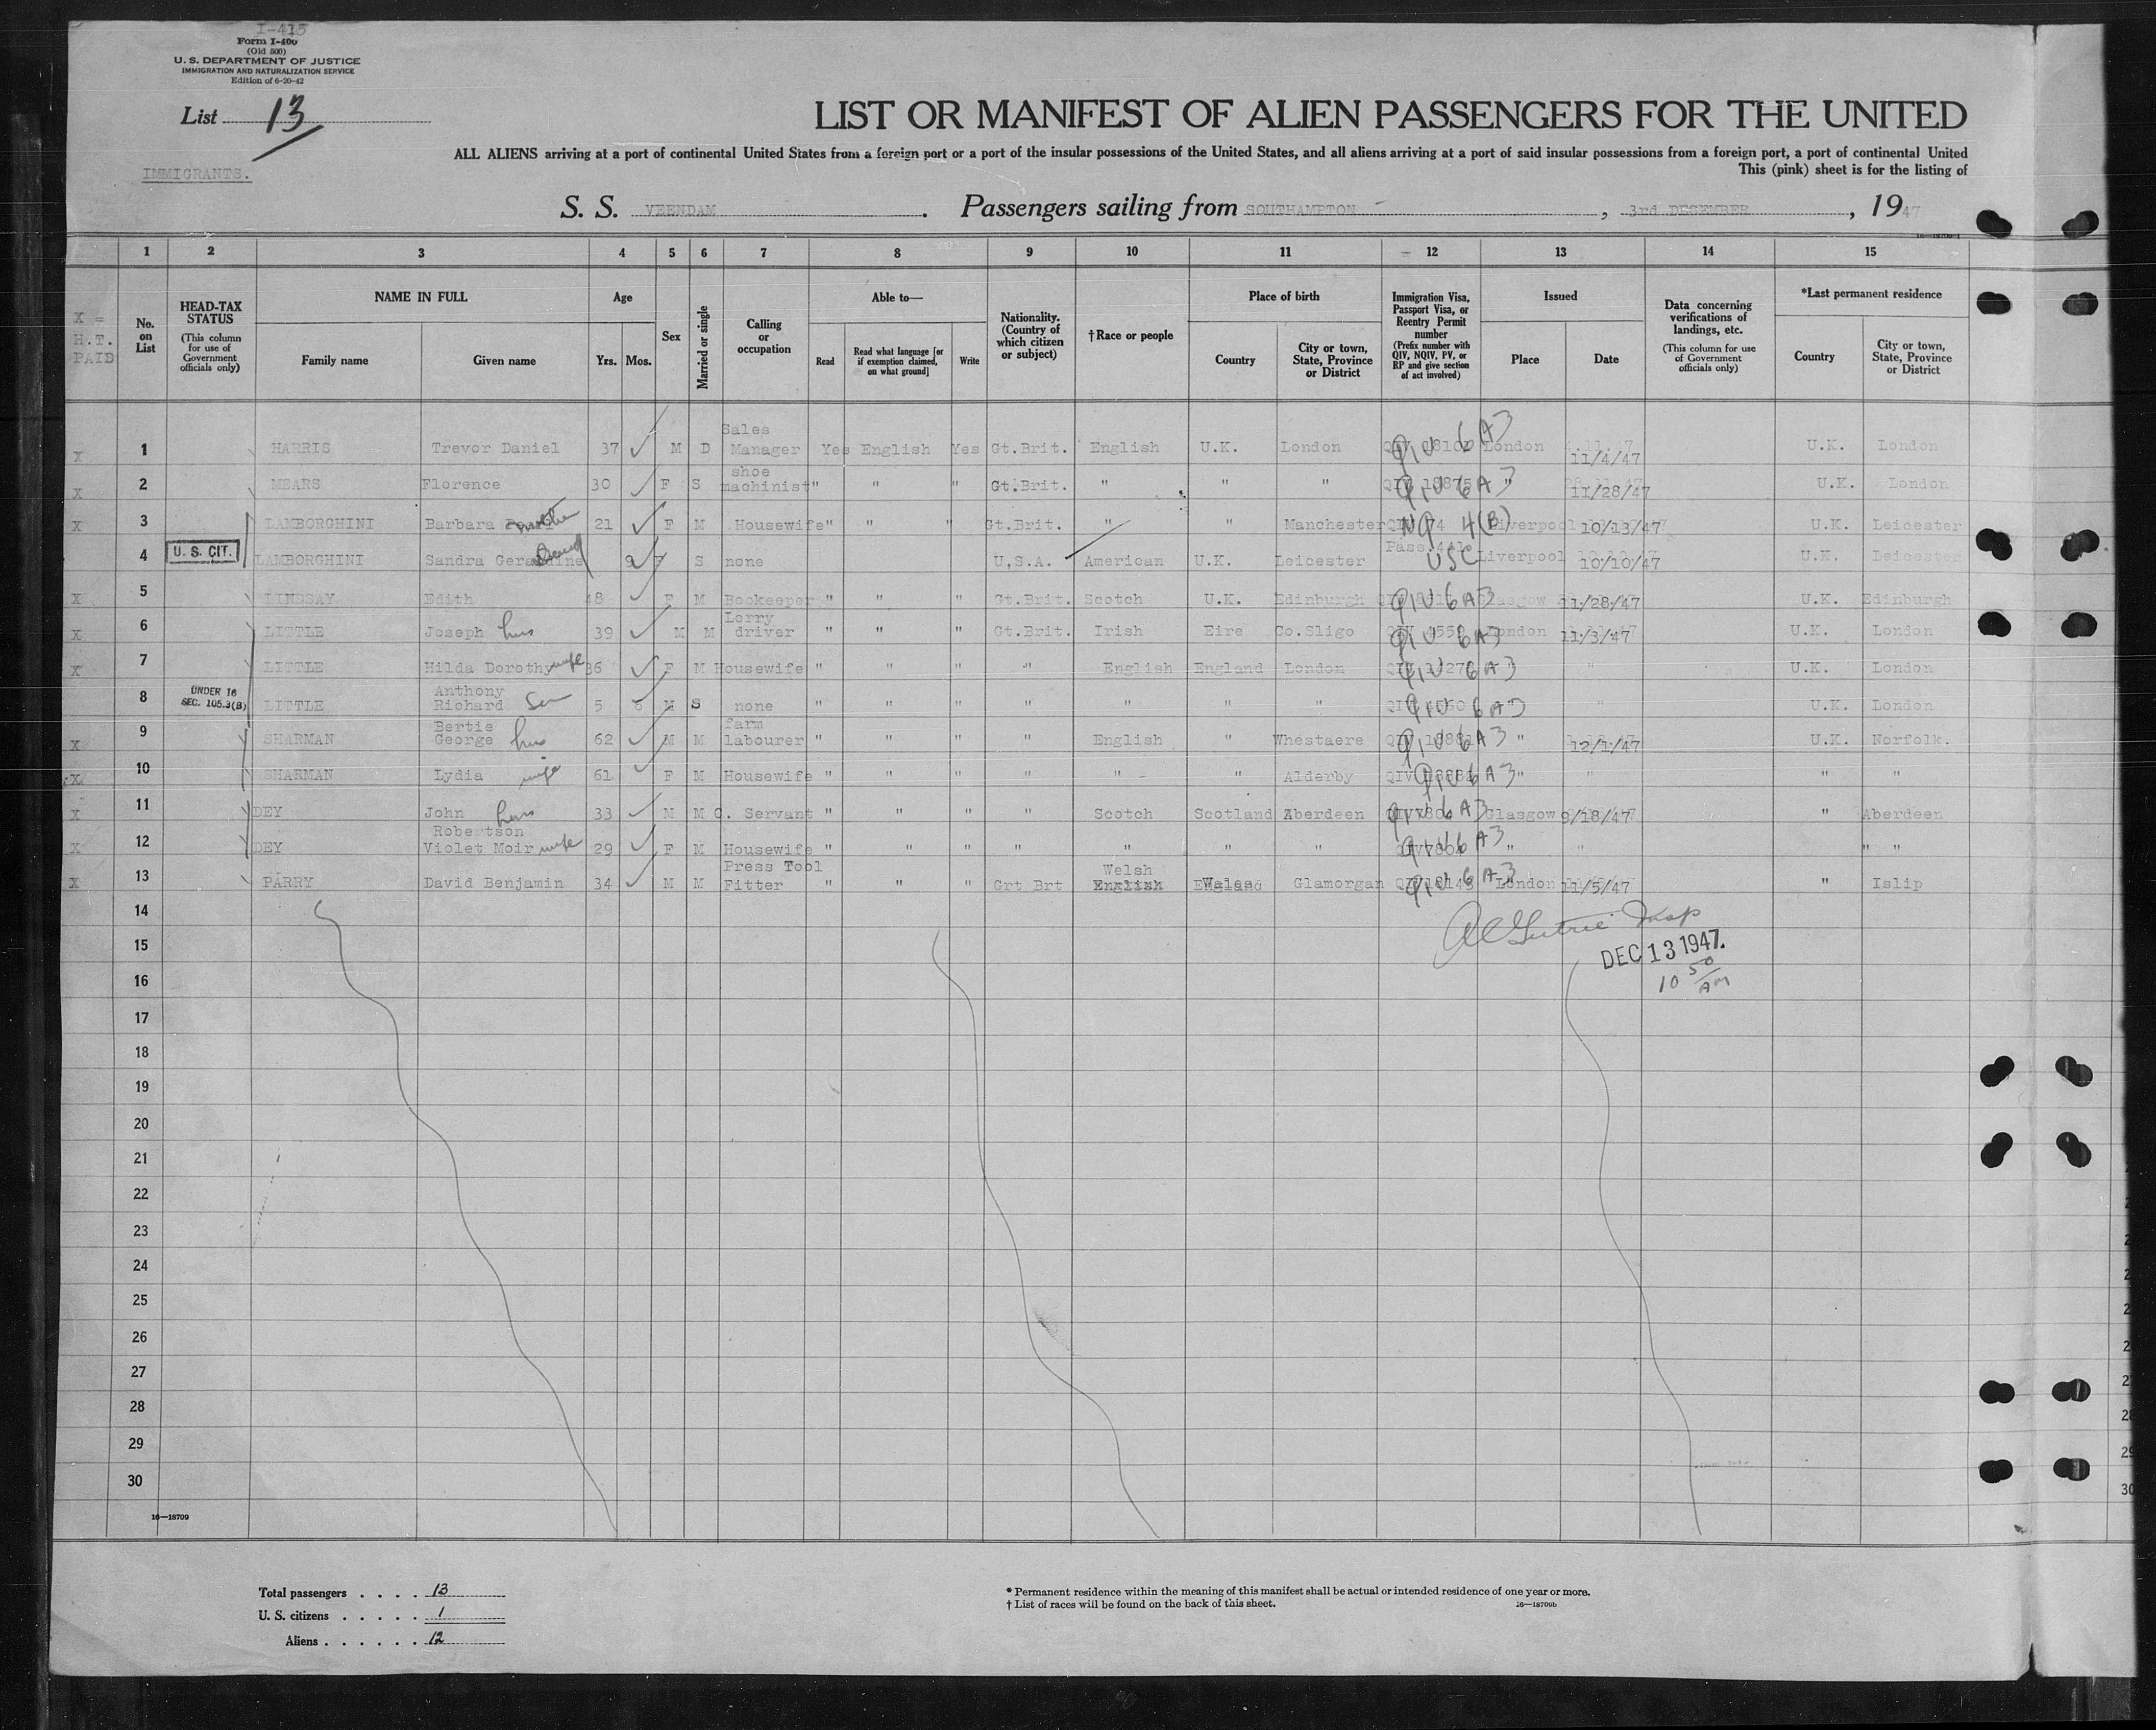 I-415
Form I-400
(Old 500)
U. S. DEPARTMENT OF JUSTICE
IMMIGRATION AND NATURALIZATION SERVICE
Edition of 6-20-42
List 13
LIST OR MANIFEST OF ALIEN PASSENGERS FOR THE UNITED
ALL ALIENS arriving at a port of continental United States from a foreign port or a port of the insular possessions of the United States, and all aliens arriving at a port of said insular possessions from a foreign port, a port of continental United
This (pink) sheet is for the listing of
IMMIGRANTS.
S. S. VEENDAM . Passengers sailing from SOUTHAMPTON , 3rd DECEMBER , 19 47
1 2 3 4 5 6 7 8 9 10 11 12 13 14 15
X = H.T. PAID
No. on List
HEAD-TAX STATUS (This column for use of Government officials only)
NAME IN FULL Family name Given name
Age Yrs. Mos.
Sex
Married or single
Calling or occupation
Able to— Read Read what language [or if exemption claimed, on what ground] Write
Nationality. (Country of which citizen or subject)
† Race or people
Place of birth Country City or town, State, Province or District
Immigration Visa, Passport Visa, or Reentry Permit number (Prefix number with QIV, NQIV, PV, or RP and give section of act involved)
Issued Place Date
Data concerning verifications of landings, etc. (This column for use of Government officials only)
*Last permanent residence Country City or town, State, Province or District
X 1 HARRIS Trevor Daniel 37 M D Sales Manager Yes English Yes Gt.Brit. English U.K. London QIV 6A3 London 11/4/47 U.K. London
X 2 MEARS Florence 30 F S shoe machinist " " " Gt.Brit. " " " QIV 6A3 " 11/28/47 U.K. London
X 3 LAMBORGHINI Barbara mother 21 F M Housewife " " " Gt.Brit. " " Manchester NQ 4(B) Liverpool 10/13/47 U.K. Leicester
U. S. CIT. 4 LAMBORGHINI Sandra Geraldine 9 F S none U.S.A. American U.K. Leicester Pass. USC Liverpool 10/10/47 U.K. Leicester
X 5 LINDSAY Edith 48 F M Bookeeper " " " Gt.Brit. Scotch U.K. Edinburgh QIV 6A3 Glasgow 11/28/47 U.K. Edinburgh
X 6 LITTLE Joseph hus 39 M M Lorry driver " " " Gt.Brit. Irish Eire Co.Sligo QIV 6A3 London 11/3/47 U.K. London
X 7 LITTLE Hilda Dorothy wife 36 F M Housewife " " " " English England London QIV 6A3 " " U.K. London
UNDER 16 SEC. 105.3(B) 8 LITTLE Anthony Richard son 5 6 M S none " " " " " " " QIV 6A3 " " U.K. London
X 9 SHARMAN Bertie George hus 62 M M farm labourer " " " " English " Whestaere QIV 6A3 " 12/1/47 U.K. Norfolk.
X 10 SHARMAN Lydia wife 61 F M Housewife " " " " " " Alderby QIV 6A3 " " " "
X 11 DEY John hus 33 M M C. Servant " " " " Scotch Scotland Aberdeen QIV 6A3 Glasgow 9/18/47 " Aberdeen
X 12 DEY Robertson Violet Moir wife 29 F M Housewife " " " " " " " QIV 6A3 " " " "
X 13 PARRY David Benjamin 34 M M Press Tool Fitter " " " Grt Brt Welsh English Wales Glamorgan QIV 6A3 London 11/5/47 " Islip
14
15
DEC 13 1947.
16
10 50 AM
17
18
19
20
21
22
23
24
25
26
27
28
29
30
16—18709
Total passengers . . . . 13
U. S. citizens . . . . . 1
Aliens . . . . . . 12
* Permanent residence within the meaning of this manifest shall be actual or intended residence of one year or more.
† List of races will be found on the back of this sheet.
16—18709b